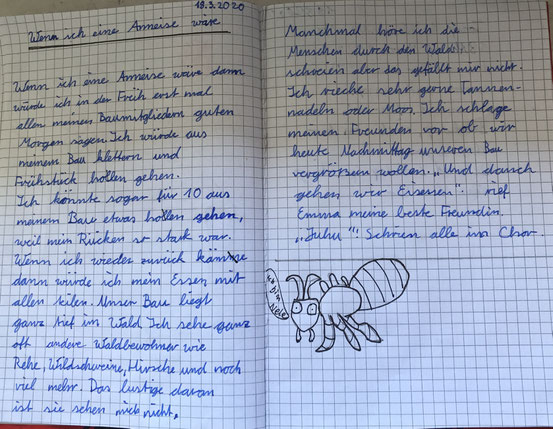 19.3.2020
Wenn ich eine Ameise wäre
Wenn ich eine Ameise wäre dann
würde ich in der Früh erst mal
allen meinen Baumitgliedern guten
Morgen sagen. Ich würde aus
meinem Bau klettern und
Frühstück hollen gehen.
Ich könnte sogar für 10 aus
meinem Bau etwas hollen gehen,
weil mein Rücken so stark war.
Wenn ich wieder zurück käme
dann würde ich mein Essen mit
allen teilen. Unser Bau liegt
ganz tief im Wald. Ich sehe ganz
oft andere Waldbewohner wie
Rehe, Wildschweine, Hirsche und noch
viel mehr. Das lustige daran
ist sie sehen mich nicht.
Manchmal höre ich die
Menschen durch den Wald
schreien aber das gefällt mir nicht.
Ich rieche sehr gerne tannen-
nadeln oder Moos. Ich schlage
meinen Freunden vor ob wir
heute Nachmittag unseren Bau
vergrößern wollen. „Und danach
gehen wir Eisessen“ rief
Emma meine beste Freundin.
„Juhu“! Schrien alle im Chor.